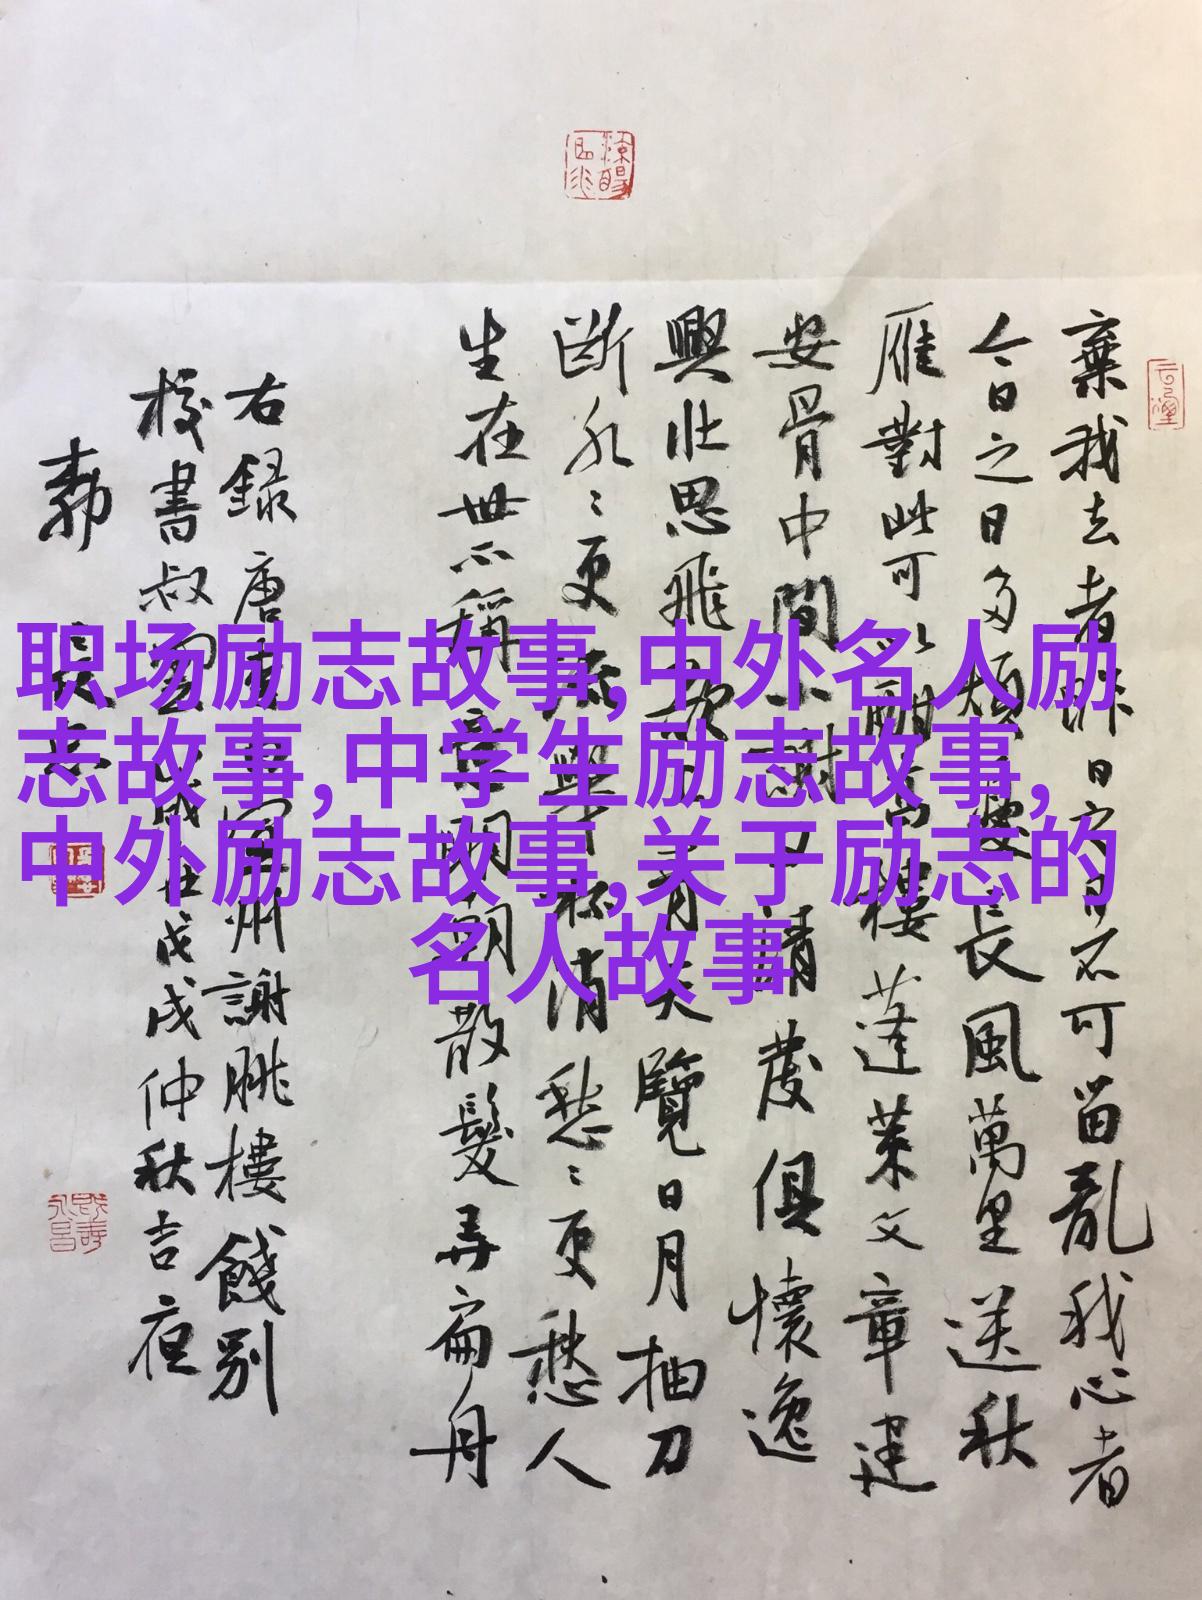 棄我去者昨日之日不可留亂我心者
今日之日多煩憂長風萬里送秋
雁對此可以酣高樓蓬萊文章建
安骨中間小謝又清發俱懷逸
興壯思飛欲上青天覽日月抽刀
斷水〻更流舉杯消愁〻更愁人
生在世不稱意明朝散髮弄扁舟
右錄唐李白宣州謝朓樓餞別
校書叔雲歲在戊戌仲秋吉夜
职场励志故事,中外名人励
志故事,中学生励志故事,
中外励志故事,关于励志的
名人故事